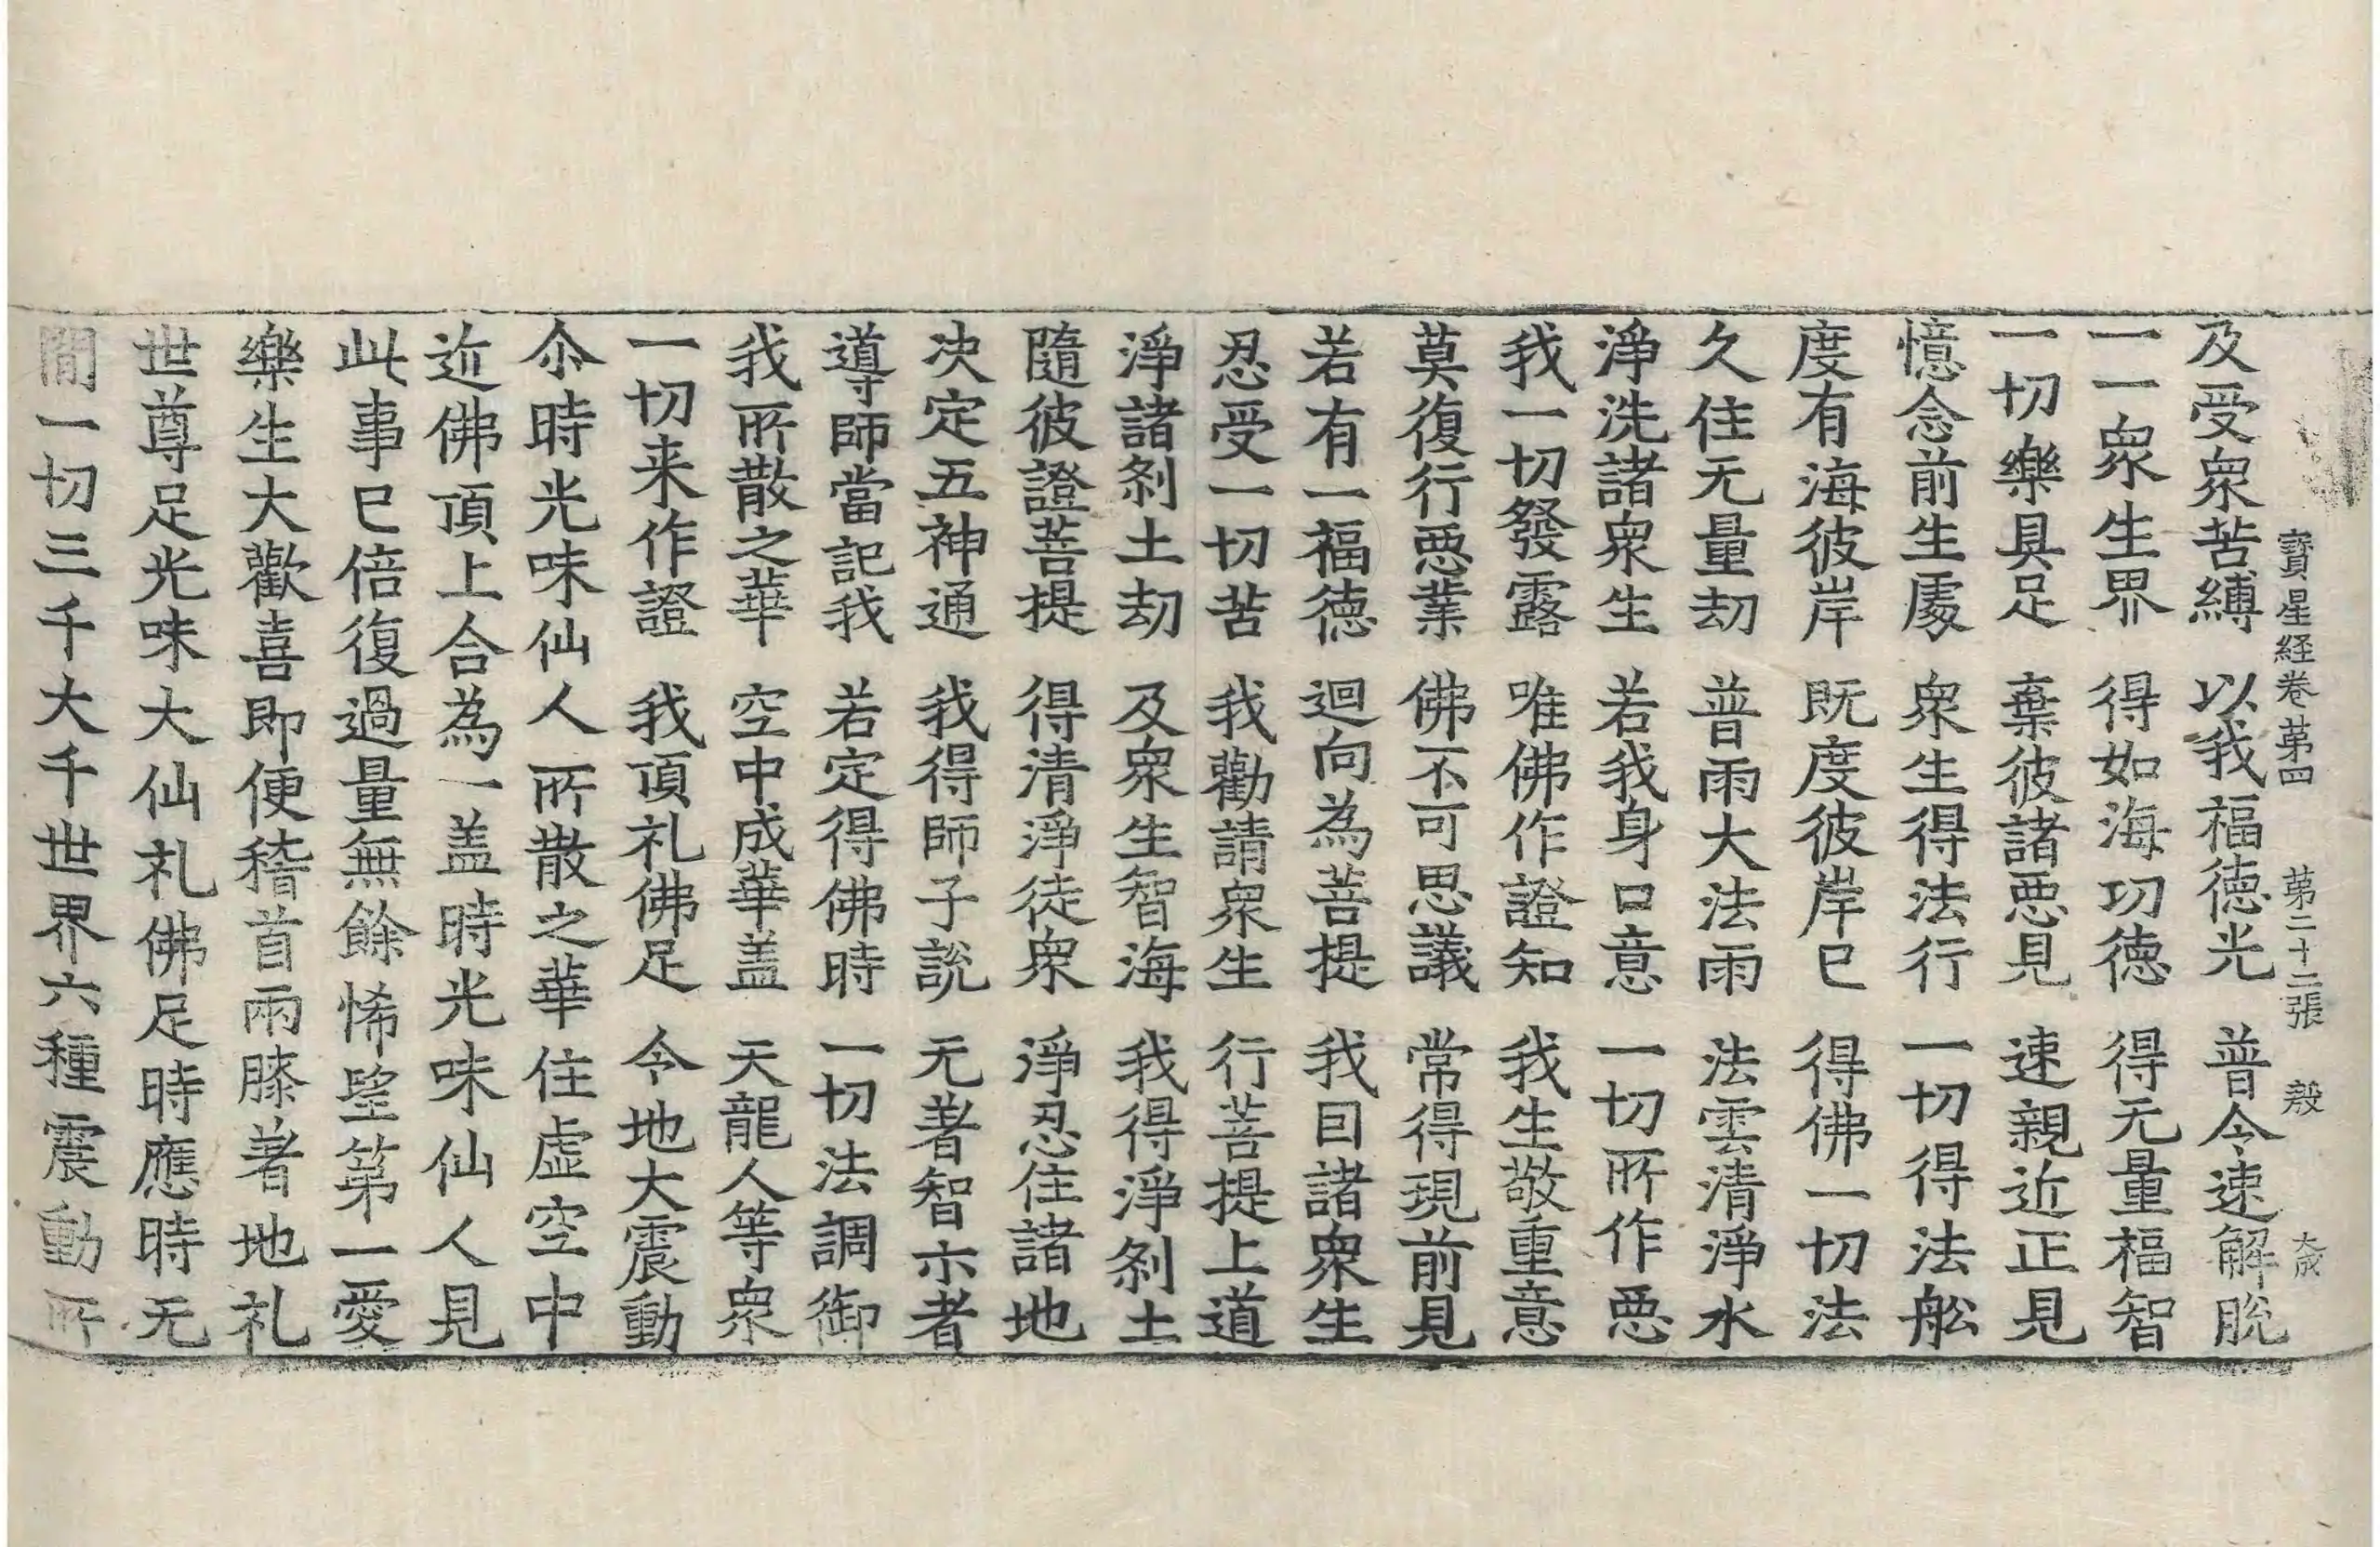 寶星経卷第四　第二十二張　㲉　大成
及受衆苦縛　以我福德光　普令速解脫
一一衆生界　得如海功德　得无量福智
一切樂具足　棄彼諸惡見　速親近正見
憶念前生處　衆生得法行　一切得法舩
度有海彼岸　既度彼岸已　得佛一切法
久住无量劫　普雨大法雨　法雲清淨水
淨洗諸衆生　若我身口意　一切所作惡
我一切發露　唯佛作證知　我生敬重意
莫復行惡業　佛不可思議　常得現前見
若有一福德　迴向為菩提　我囙諸衆生
忍受一切苦　我勸請衆生　行菩提上道
淨諸剎土劫　及衆生智海　我得淨剎土
隨彼證菩提　得清淨徒衆　淨忍住諸地
决定五神通　我得師子說　无著智亦者
導師當記我　若定得佛時　一切法調御
我所散之華　空中成華盖　天龍人等衆
一切来作證　我頂礼佛足　今地大震動
尒時光味仙人所散之華住虛空中
近佛頂上合為一盖時光味仙人見
此事已倍復過量無餘悕望第一愛
樂生大歡喜即便稽首兩膝著地礼
世尊足光味大仙礼佛足時應時无
間一切三千大千世界六種震動所